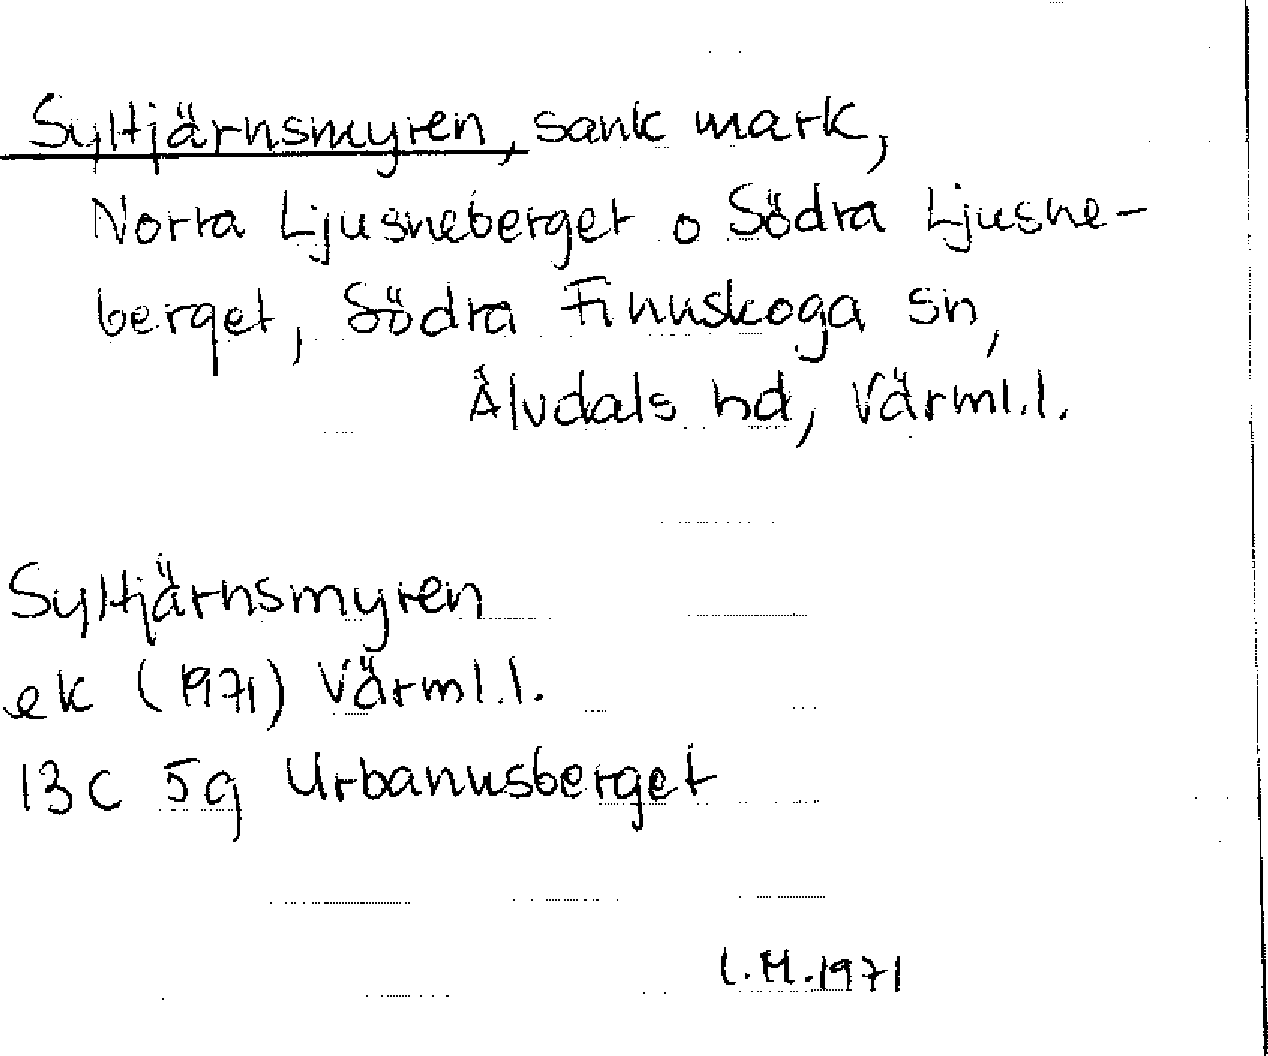 Syltjärnsmyren, sank mark,
Norra Ljusneberget o Södra Ljusne-
berget, Södra Finnskoga sn,
Älvdals hd, Värml.l.
Syltjärnsmyren
ek (1971) Värml.l.
13C 5g Urbanusberget
L.M.1971